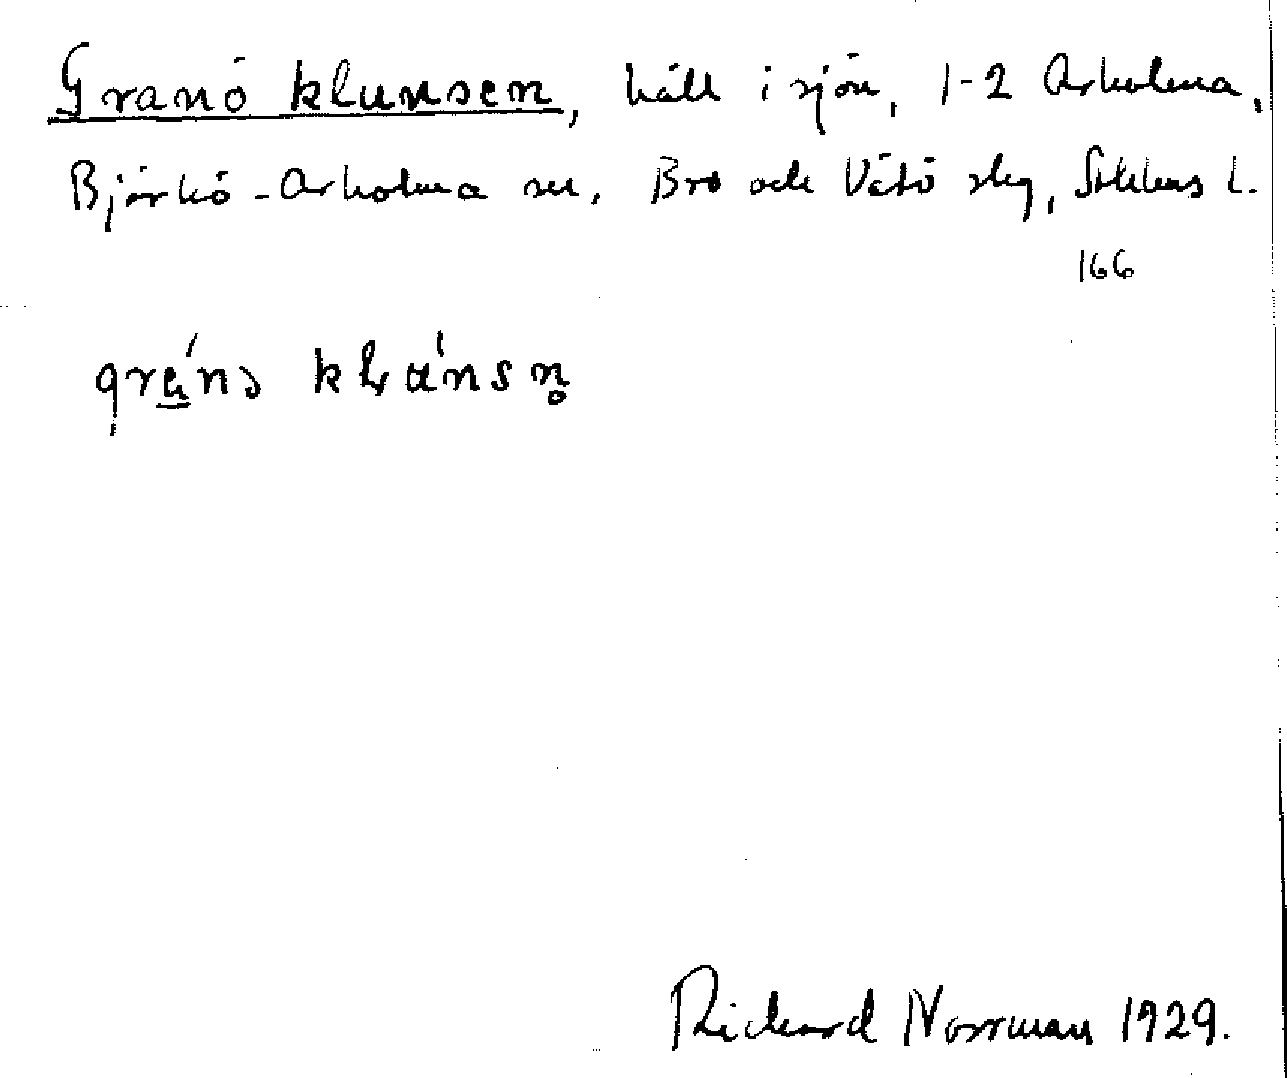 Granö klunsen, häll i sjön, 1-2 Arholma,
Björkö-Arholma sn, Bro och Vätö skg, Sthlms L.
166
Richard Norrman 1929.